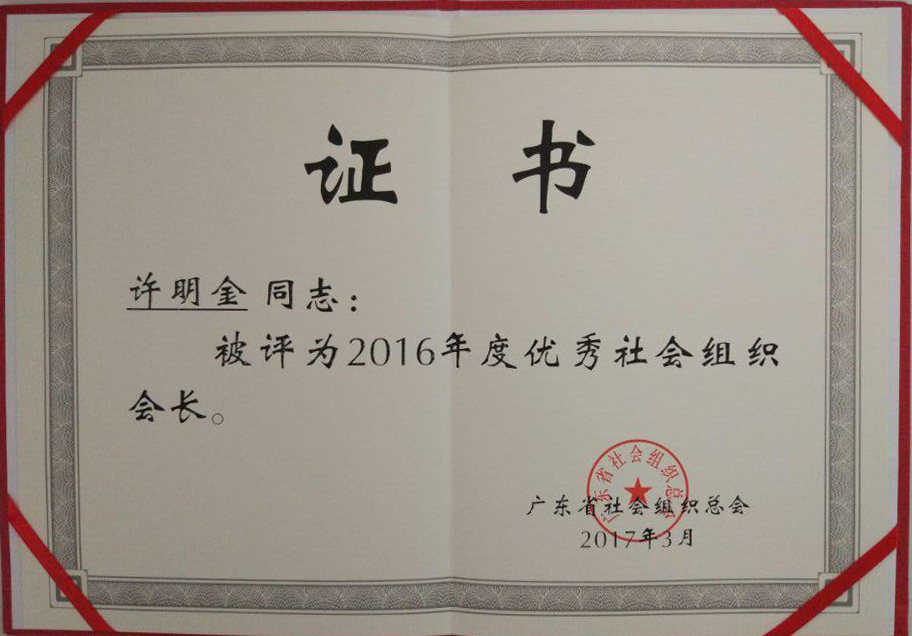 证 书
许明金 同志：
被评为2016年度优秀社会组织
会长。
广东省社会组织总会
广东省社会组织总会
2017年3月